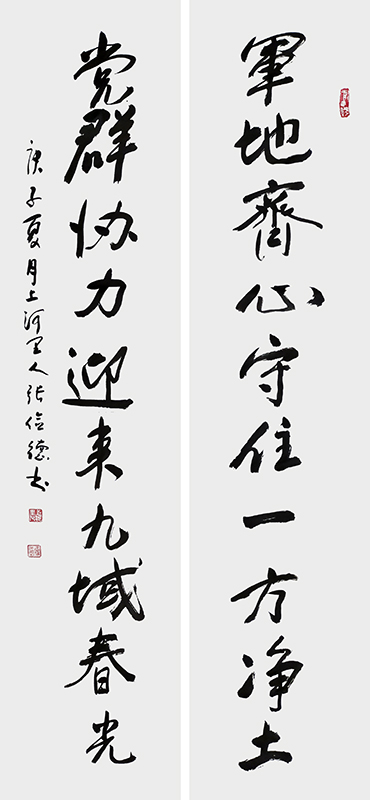 軍地齊心守住一方净土
党群协力迎来九域春光
庚子夏月上河里人张俭德书